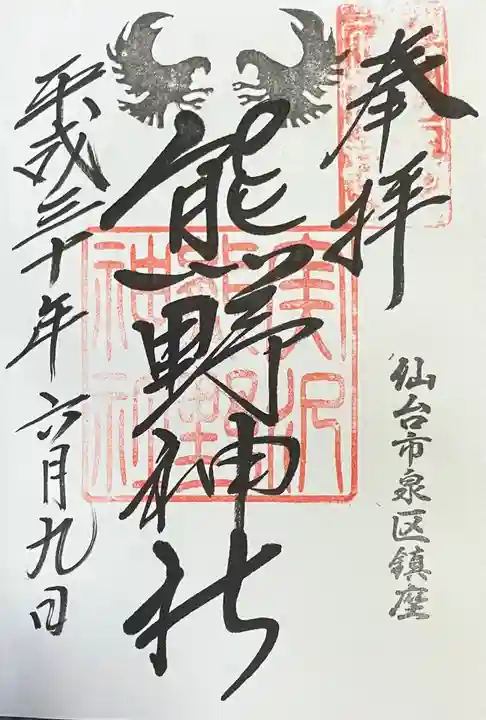 奉拝
仙台市泉区鎮座
熊野神社
美沢
熊野
神社
平成三十年六月九日